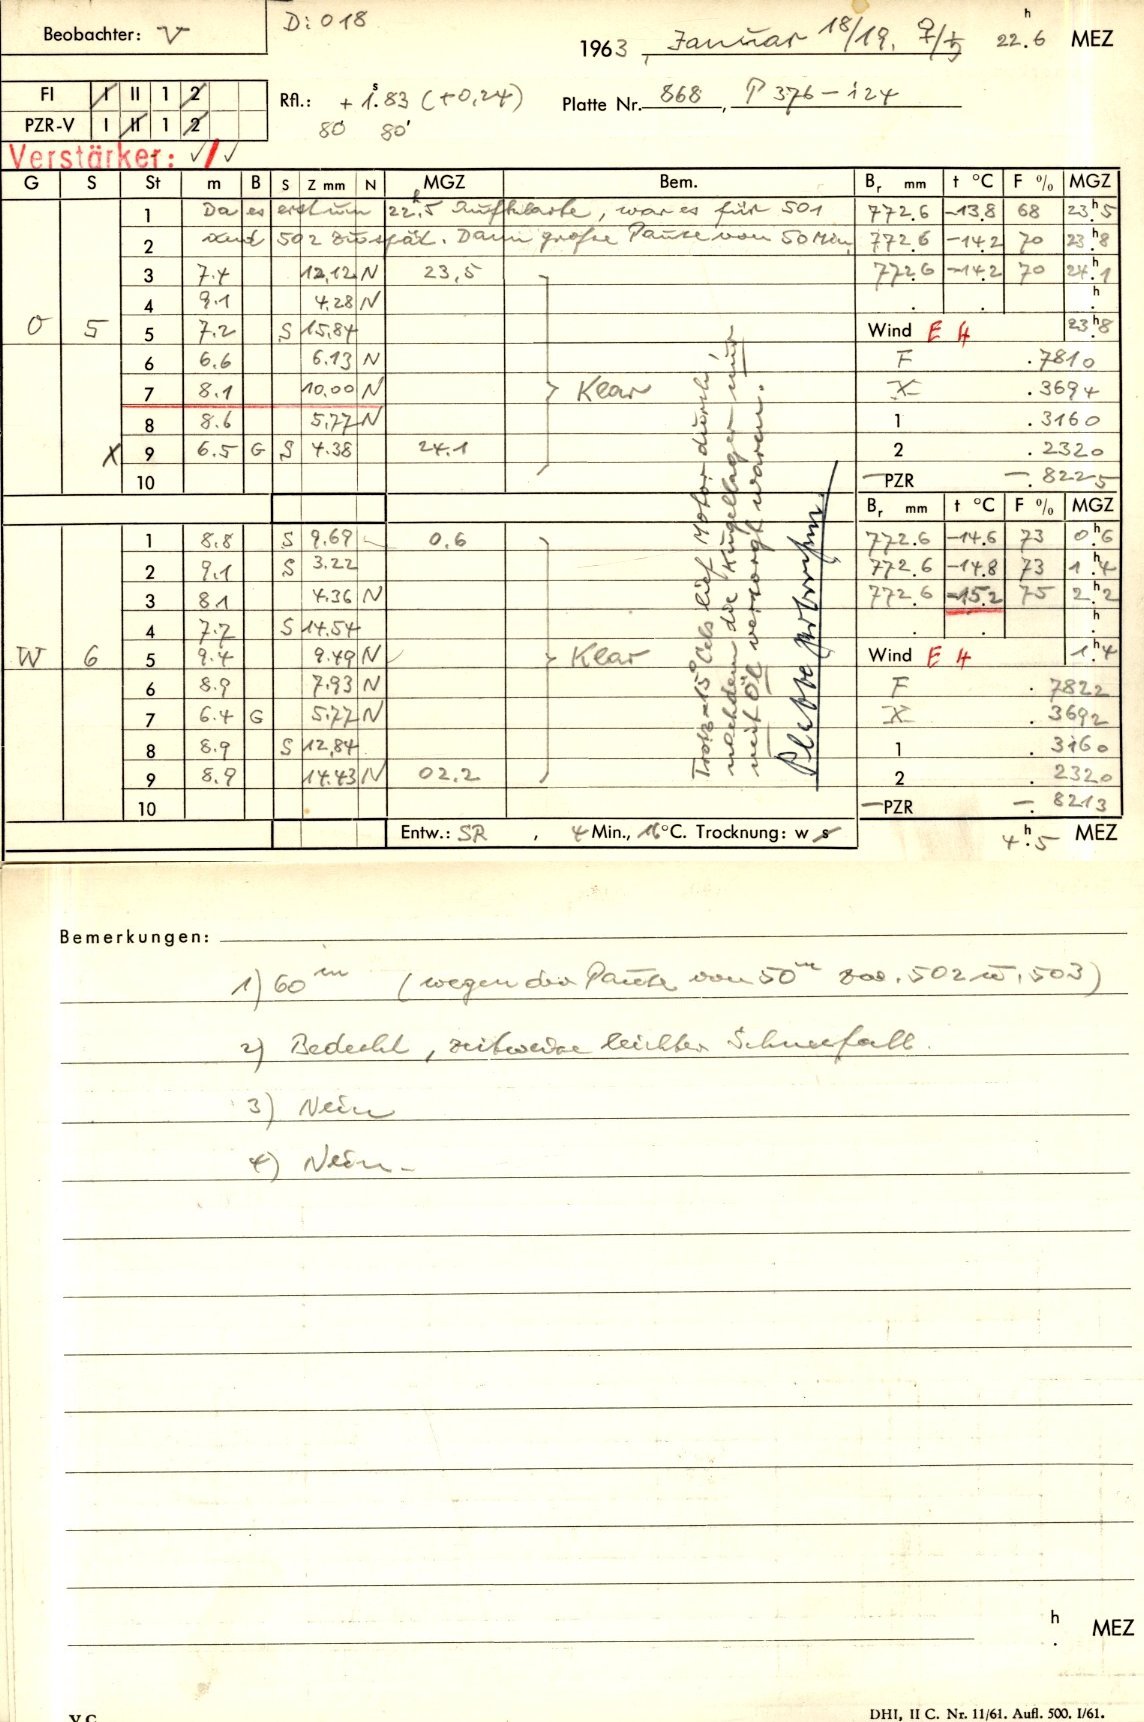 Beobachter: V
Di 018
1963, Januar 18/19. ♀/♄ 22.h6 MEZ
FI I II 1 2
PZR-V I II 1 2
Rfl.: + 1.s83 (+0,24)
80' 80'
Platte Nr. 868, P 376-i24
Verstärker: ✓/✓
G S St m B S Z mm N MGZ Bem. Br mm t °C F % MGZ
1 Da es erst um 22.h5 aufklarte, war es für 501 772.6 -13.8 68 23.h5
2 und 502 zu spät. Dann große Pause von 50 Min. 772.6 -14.2 70 23.h8
3 7.4 12,12 N 23,5 772.6 -14.2 70 24.h1
4 9.1 4.28 N . . h.
O 5 5 7.2 S 15,84 Wind E 4 23.h8
6 6.6 6.13 N F .7810
7 8.1 10,00 N Klar X .3694
8 8.6 5,77 N 1 .3160
X 9 6.5 G S 4.38 24.1 2 .2320
10 -PZR -.8225
Br mm t °C F % MGZ
1 8.8 S 9.69 0.6 772.6 -14.6 73 0.h6
2 9.1 S 3.22 772.6 -14.8 73 1.h4
3 8.1 4.36 N 772.6 -15.2 75 2.h2
4 7.7 S 14.54 . . h.
W 6 5 9.4 9.49 N Klar Wind E 4 1.h4
6 8.9 7.93 N F .7822
7 6.4 G 5.77 N X .3692
8 8.9 S 12,84 1 .3160
9 8.9 14.43 N 02.2 2 .2320
10 -PZR -.8213
Trotz -15° Cels lief Motor durch,
nachdem die Kugellager nur
mit Öl versorgt waren.
Platte
Entw.: SR, 4 Min., 16 °C. Trocknung: w s
4.h5 MEZ
Bemerkungen:
1) 60m (wegen der Pause von 50m zw. 502 u. 503)
2) Bedeckt, zeitweise leichter Schneefall.
3) Nein
4) Nein-
h. MEZ
V C
DHI, II C. Nr. 11/61. Aufl. 500. I/61.